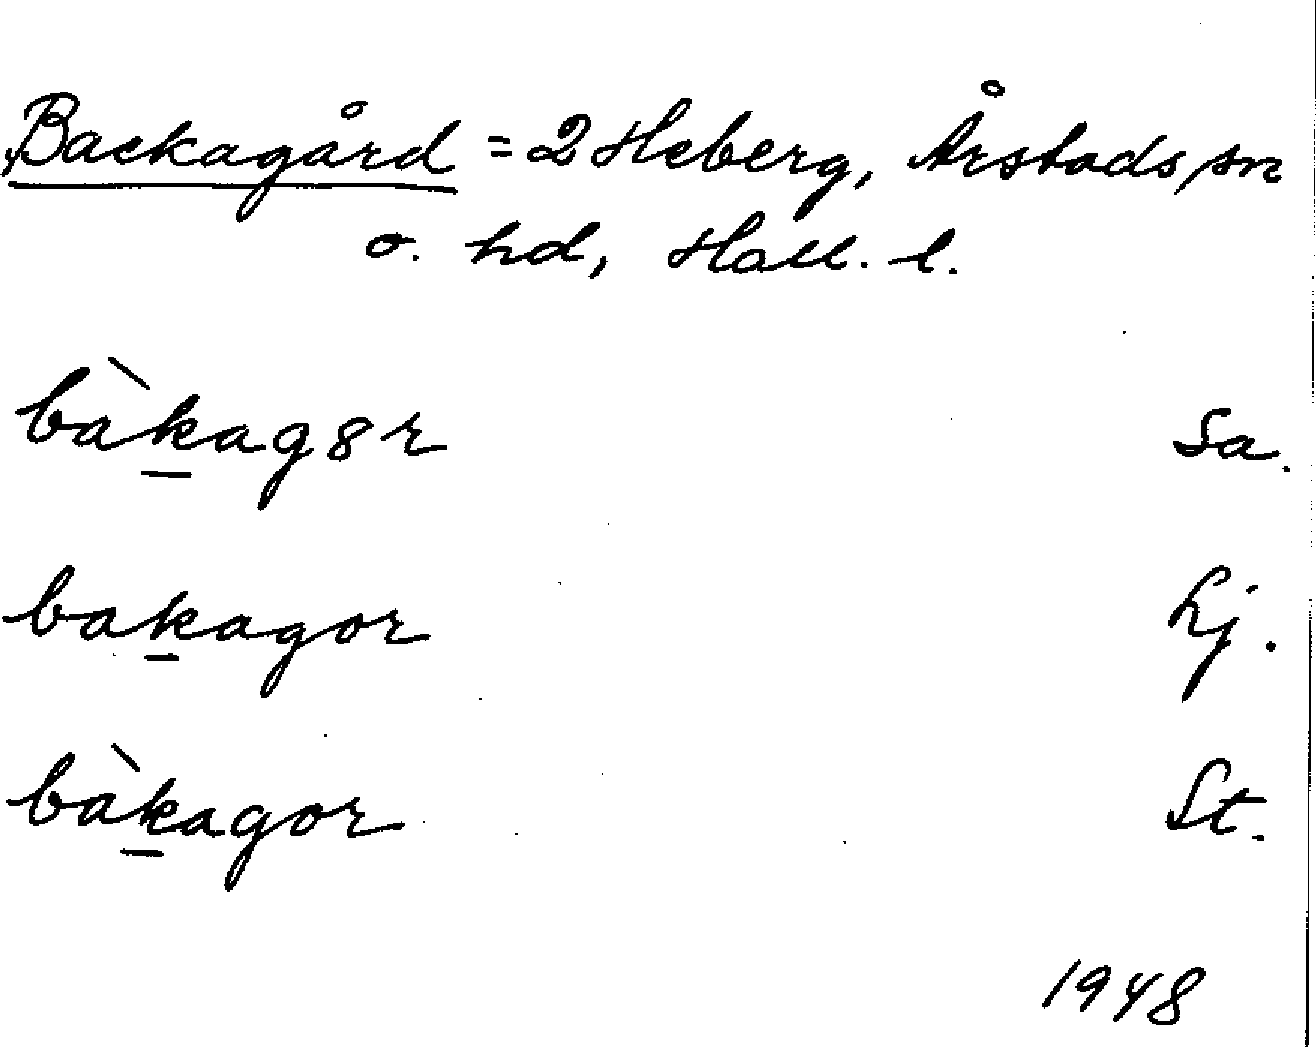 Backagård = 2 Heberg, Årstads sn
o. hd, Hall. l.
bàkag8r Sa.
bakagor Lj.
bàkagor St.
1948